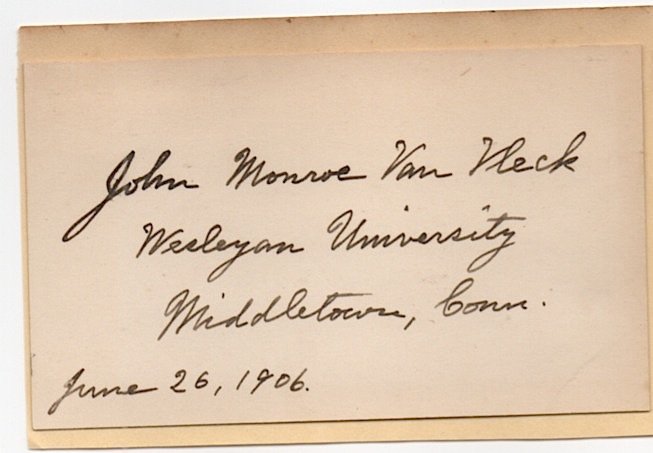 John Monroe Van Vleck
Wesleyan University
Middletown, Conn.
June 26, 1906.